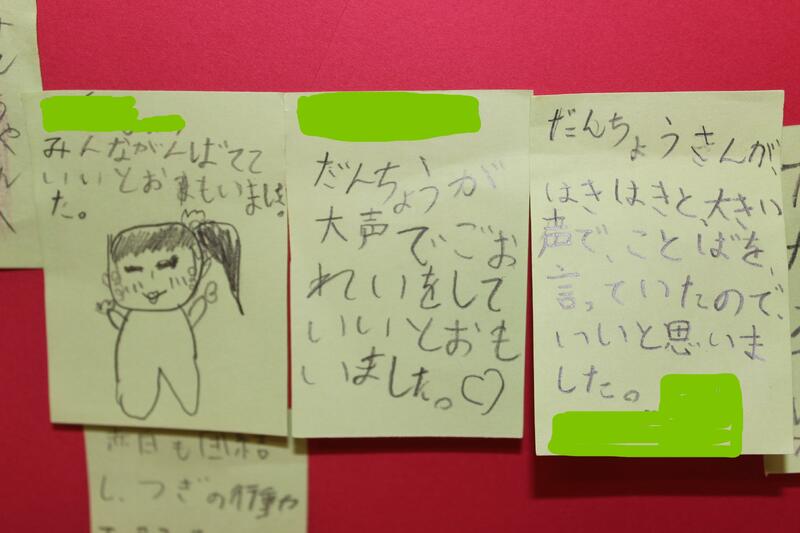 みんながんばてて
いいとおもいました。
だんちょうが
大声でごお
れいをして
いいとおも
いました。♡
だんちょうさんが、
はきはきと、大きい
声で、ことばを、
言っていたので、
いいと思いま
した。
も団結
し、つぎの